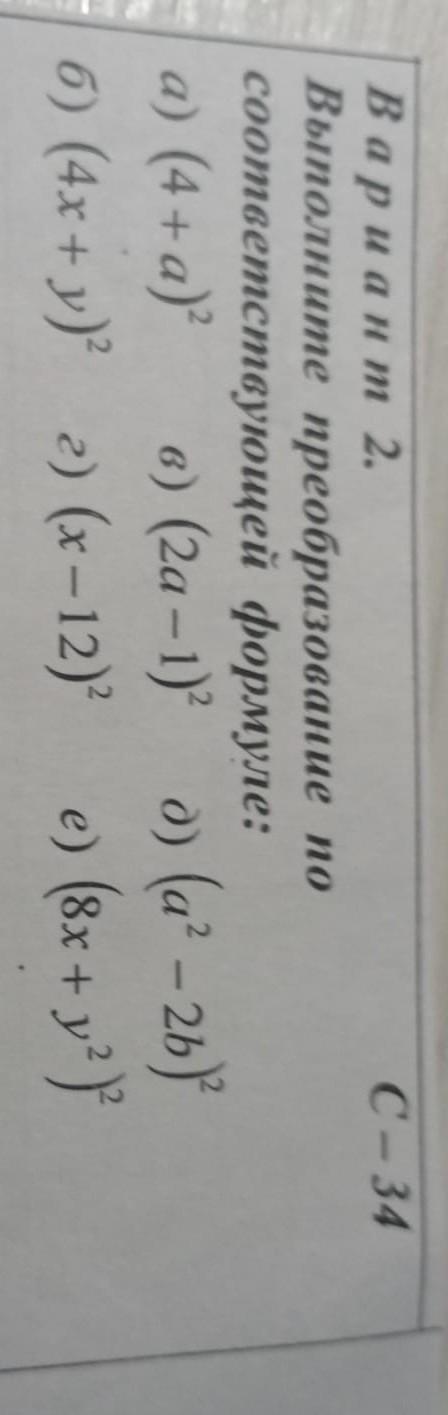 Вариант 2. С – 34
Выполните преобразование по
соответствующей формуле:
а) (4 + a)² в) (2a – 1)² д) (a² – 2b)²
б) (4x + y)² г) (x – 12)² е) (8x + y²)²